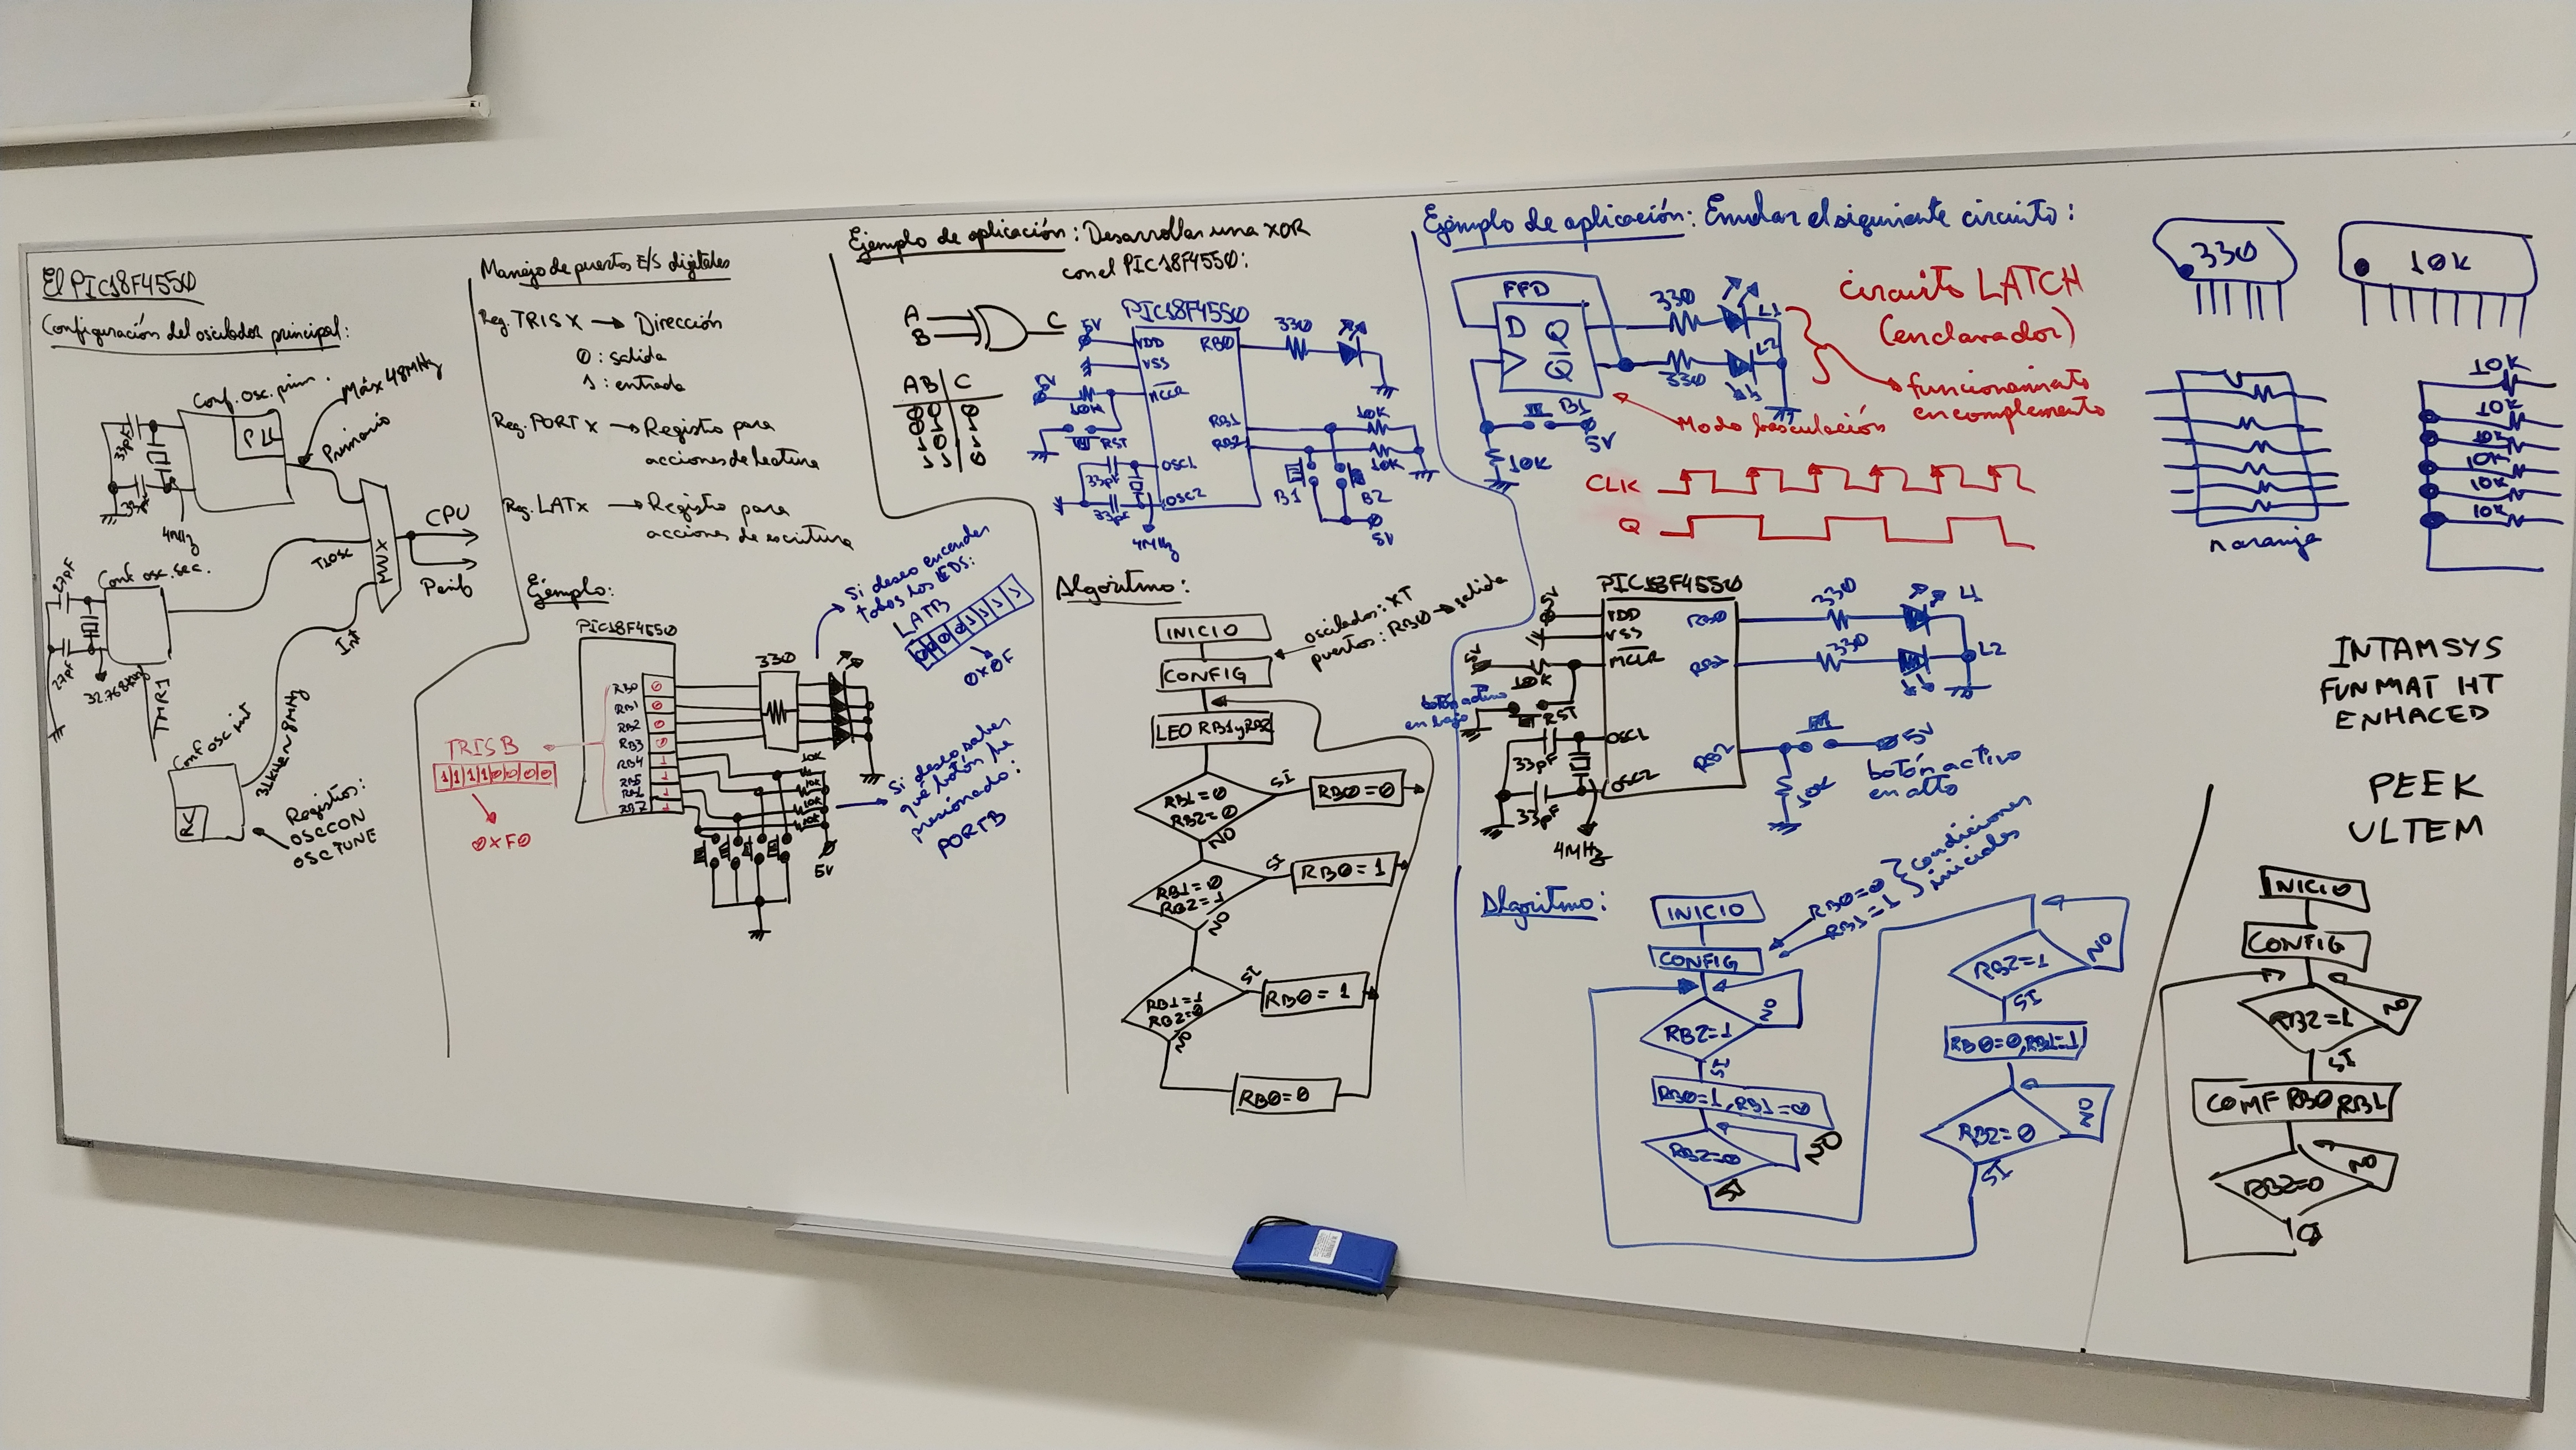 El PIC18F4550
Configuración del oscilador principal:
Conf. osc. prim.
Máx 48MHz
PLL
Primario
33pF
33pF
4MHz
MUX
CPU
Perif
T1osc
Int
27pF
Conf. osc. sec.
27pF
32.768KHz
TMR1
Conf osc int
31KHz en 8MHz
RC
Registros:
OSCCON
OSCTUNE
Manejo de puertos E/S digitales
Reg. TRISX → Dirección
0: salida
1: entrada
Reg. PORTX → Registro para
acciones de lectura
Reg. LATx → Registro para
acciones de escritura
Ejemplo:
PIC18F4550
RB0 0
RB1 0
RB2 0
RB3 0
RB4 1
RB5 1
RB6 1
RB7 1
TRISB
1 1 1 1 0 0 0 0
0xF0
330
10K
10K
10K
10K
5V
Si deseo encender
todos los LEDS:
LATB
0 0 0 0 1 1 1 1
0x0F
Si deseo saber
qué botón he
presionado:
PORTB
Ejemplo de aplicación: Desarrollar una XOR
con el PIC18F4550:
A
B
C
A B C
0 0 0
0 1 1
1 0 1
1 1 0
PIC18F4550
5V
VDD
RB0
330
VSS
5V
10K
MCLR
RST
RB1
RB2
10K
10K
33pF
OSC1
OSC2
33pF
4MHz
B1
B2
5V
Algoritmo:
INICIO
oscilador: XT
puertos: RB0 → salida
CONFIG
LEO RB1 y RB2
RB1=0
RB2=0
SI
RB0=0
NO
RB1=0
RB2=1
SI
RB0=1
NO
RB1=1
RB2=0
SI
RB0=1
NO
RB0=0
Ejemplo de aplicación: Emular el siguiente circuito:
FFD
D Q
Q
330
L1
330
L2
B1
5V
10K
circuito LATCH
(enclavador)
funcionamiento
en complemento
Modo basculación
CLK
Q
PIC18F4550
5V
VDD
VSS
5V
10K
MCLR
RST
botón activo
en bajo
33pF
OSC1
OSC2
33pF
4MHz
RB0
330
L1
RB1
330
L2
RB2
5V
10K
botón activo
en alto
Algoritmo:
INICIO
RB0=0
RB1=1
condiciones
iniciales
CONFIG
RB2=1
NO
SI
RB0=1, RB1=0
RB2=0
NO
SI
RB2=1
NO
SI
RB0=0, RB1=1
RB2=0
NO
SI
330
10K
naranja
10K
10K
10K
10K
10K
10K
INTAMSYS
FUNMAT HT
ENHACED
PEEK
ULTEM
INICIO
CONFIG
RB2=1
NO
SI
COMF RB0, RB1
RB2=0
NO